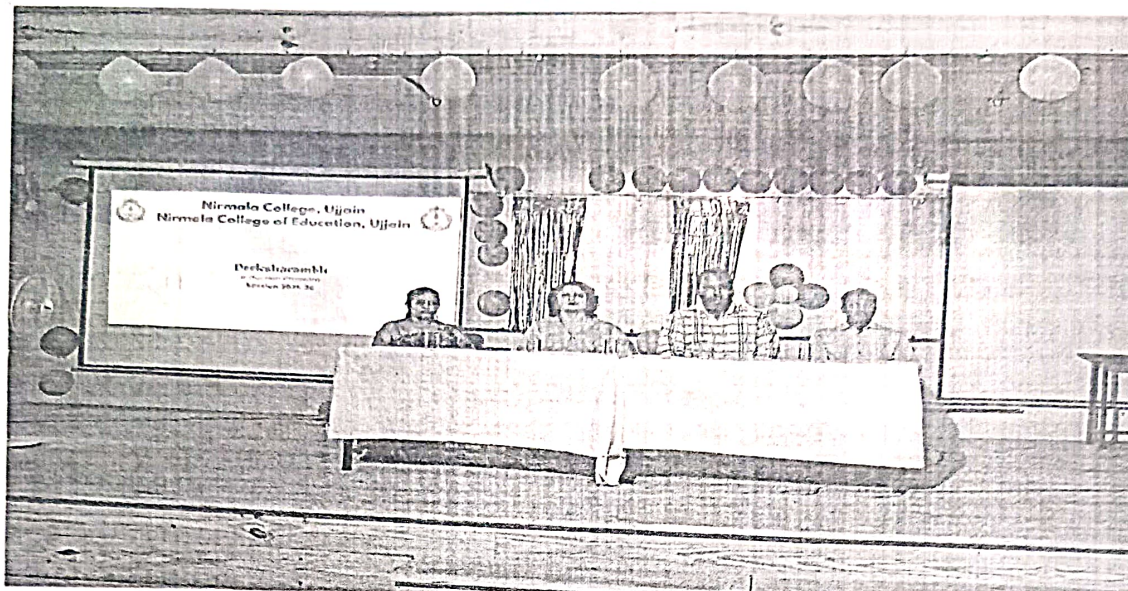 Nirmala College, Ujjain
Nirmala College of Education, Ujjain
Deeksharambh
Session 2025-26